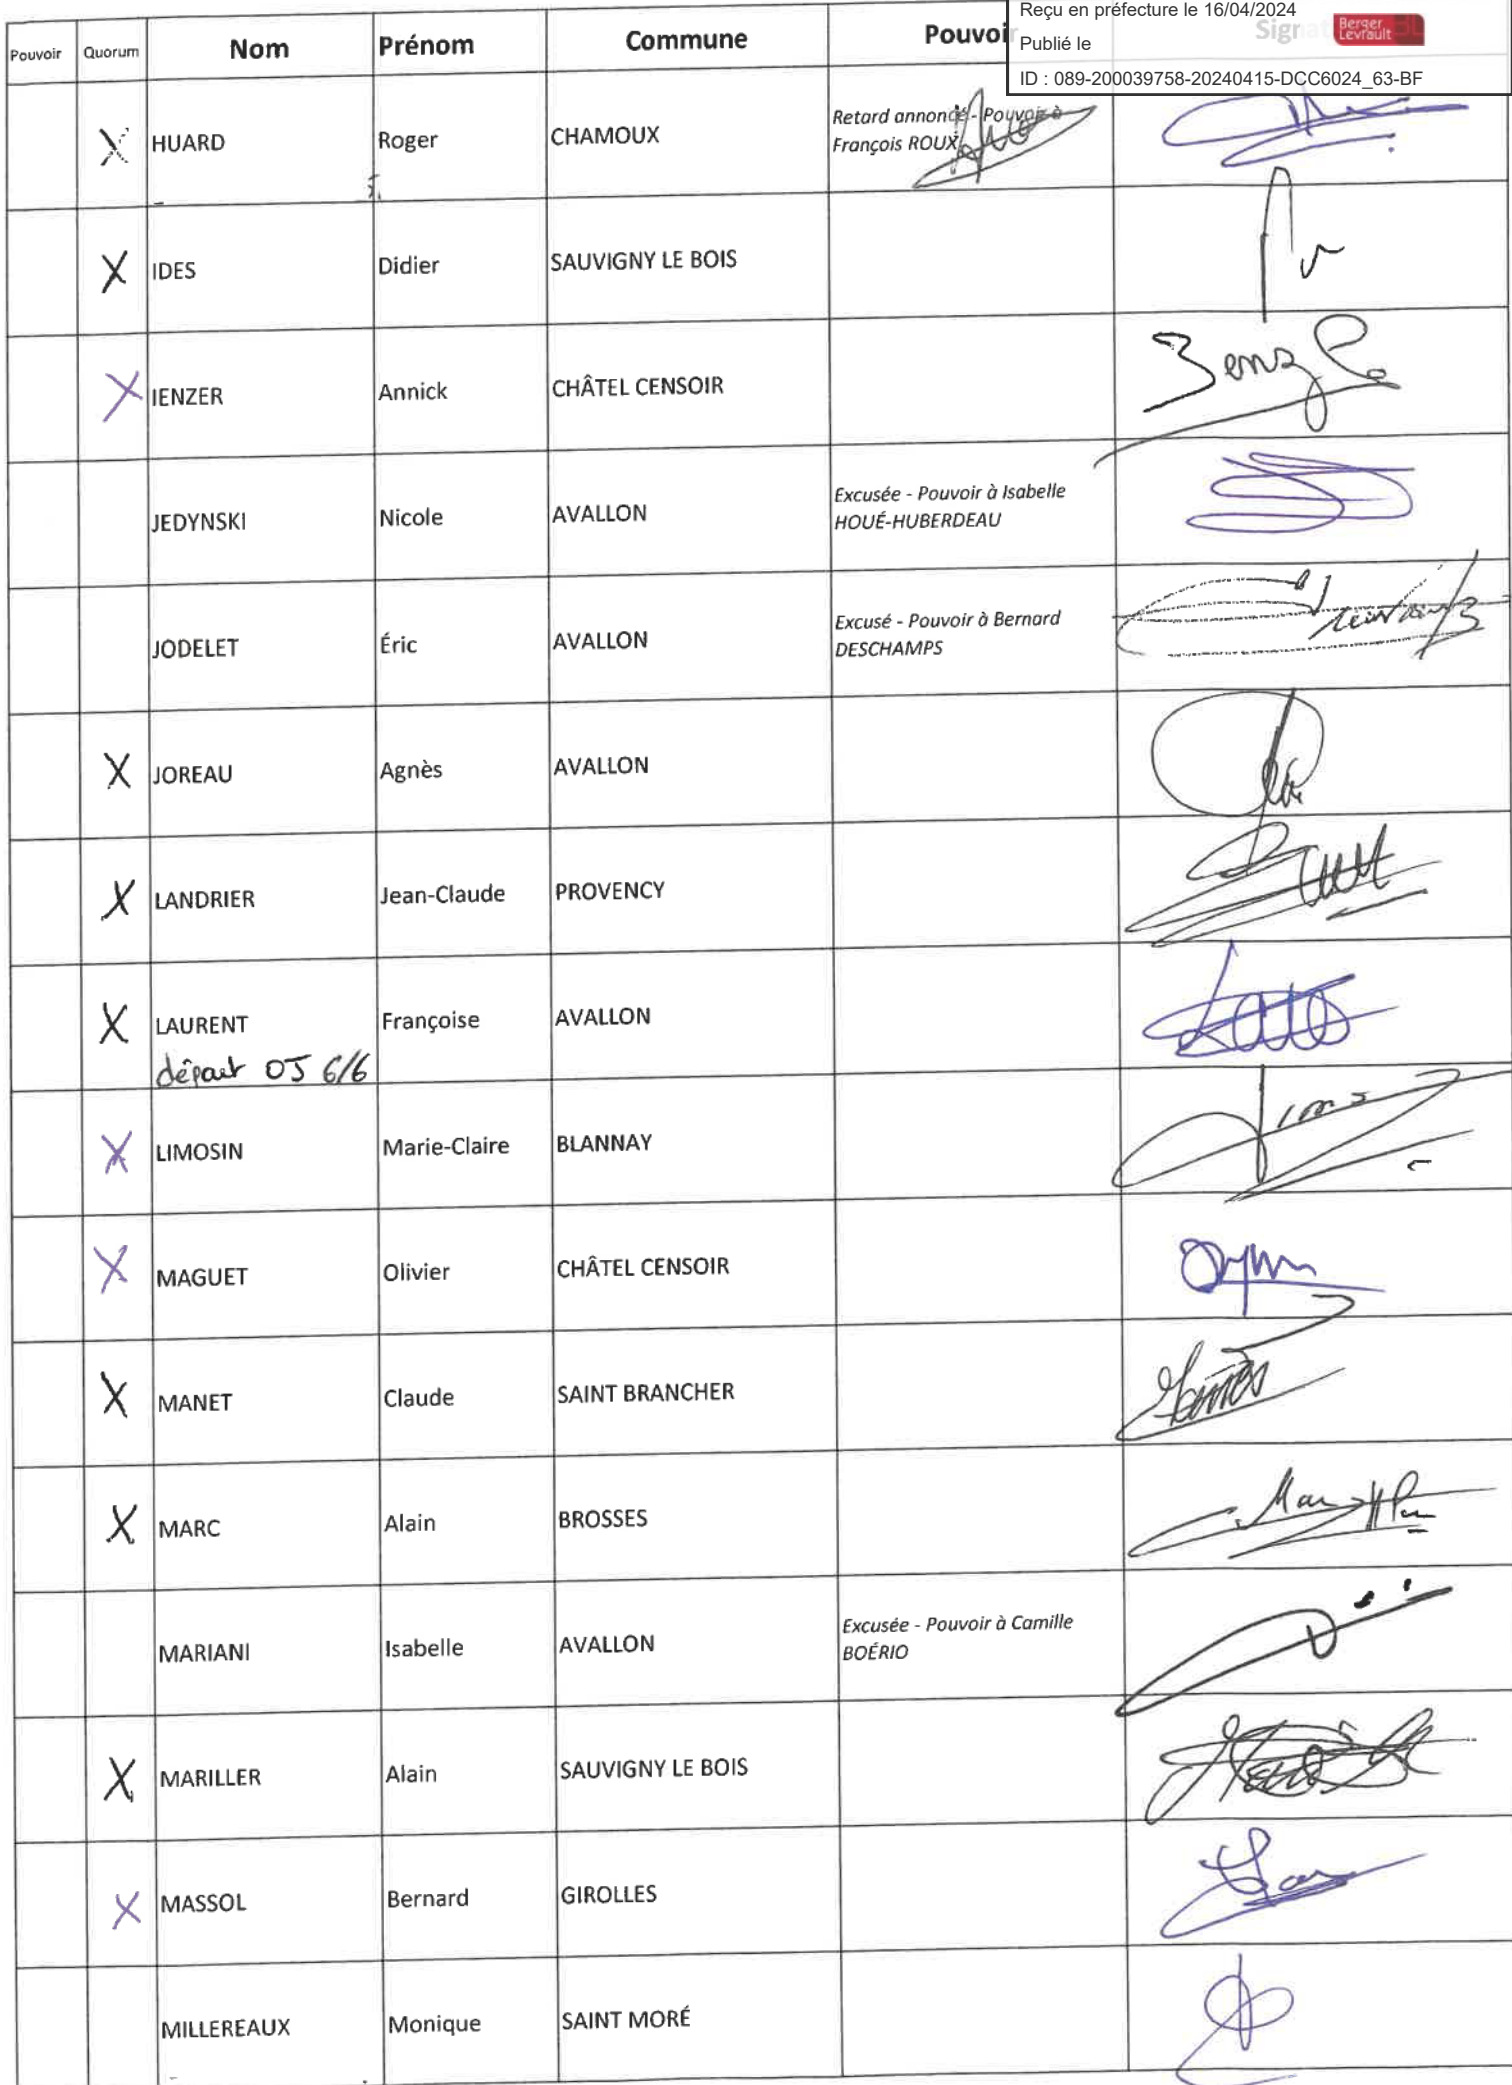 Reçu en préfecture le 16/04/2024
Publié le
Berger Levrault
ID : 089-200039758-20240415-DCC6024_63-BF
Pouvoir Quorum Nom Prénom Commune Pouvoir
X HUARD Roger CHAMOUX Retard annoncé - Pouvoir à
François ROUX
X IDES Didier SAUVIGNY LE BOIS
X IENZER Annick CHÂTEL CENSOIR
JEDYNSKI Nicole AVALLON Excusée - Pouvoir à Isabelle
HOUÉ-HUBERDEAU
JODELET Éric AVALLON Excusé - Pouvoir à Bernard
DESCHAMPS
X JOREAU Agnès AVALLON
X LANDRIER Jean-Claude PROVENCY
X LAURENT Françoise AVALLON
départ OJ 6/6
X LIMOSIN Marie-Claire BLANNAY
X MAGUET Olivier CHÂTEL CENSOIR
X MANET Claude SAINT BRANCHER
X MARC Alain BROSSES
MARIANI Isabelle AVALLON Excusée - Pouvoir à Camille
BOÉRIO
X MARILLER Alain SAUVIGNY LE BOIS
X MASSOL Bernard GIROLLES
MILLEREAUX Monique SAINT MORÉ